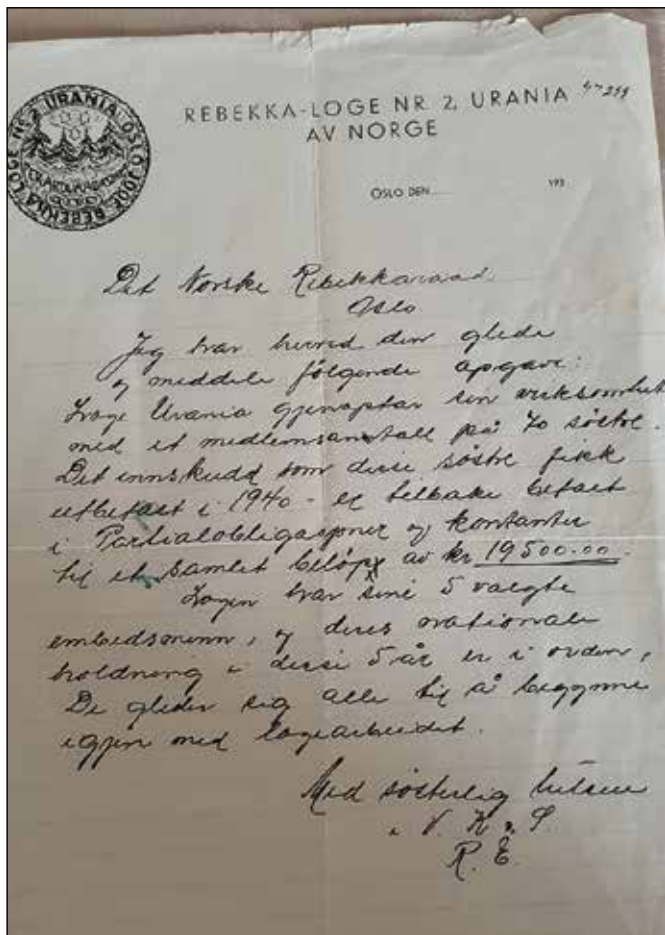 REBEKKA-LOGE NR. 2, URANIA
AV NORGE
OSLO DEN...... 193
Det Norske Rebekkaraad.
Oslo
Jeg har herved den glede
og meddele følgende opgave:
Loge Urania gjenoptar sin virksomhet
med et medlemsantall på 70 søstre.
Det innskudd som disse søstre fikk
utbetalt i 1940 - er tilbake betalt
i Partialobligasjoner og kontanter
til et samlet beløp av kr 19500.00.
Logen har sine 5 valgte
embedsmenn, og deres nationale
holdning i disse 5 år er i orden,
De gleder sig alle til å begynne
igjen med logearbeidet.
Med søsterlig hilsen
i V. K. S.
R. E.